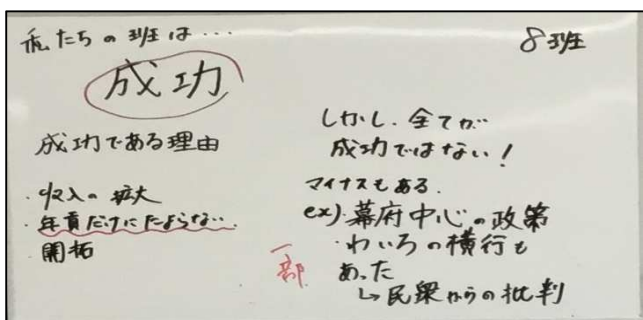 私たちの班は…
8班
成功
成功である理由
・収入の拡大
・年貢だけにたよらない…
開拓
しかし、全てが…
成功ではない！
マイナスもある．
ex) 幕府中心の政策
・わいろの横行も
一部
あった
↳民衆からの批判